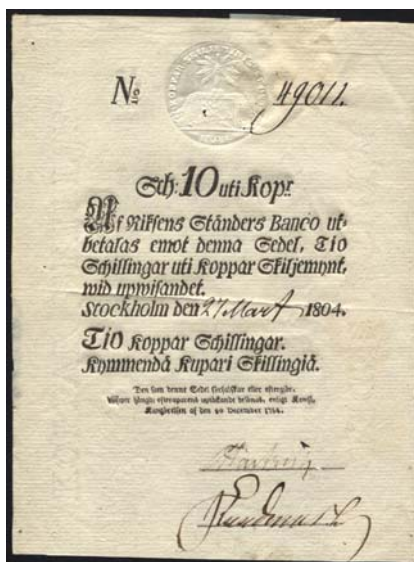 No 49011.
Sch: 10 uti Kopr
Af Riksens Ständers Banco ut-
betalas emot denna Sedel, Tio
Schillingar uti Koppar Skiljemynt,
wid upwisandet.
Stockholm den 27 Mart 1804.
Tio Koppar Schillingar.
Kymmendä Kupari Skillingiä.
Den som denne Sedel förfalskar eller eftergör,
af den December